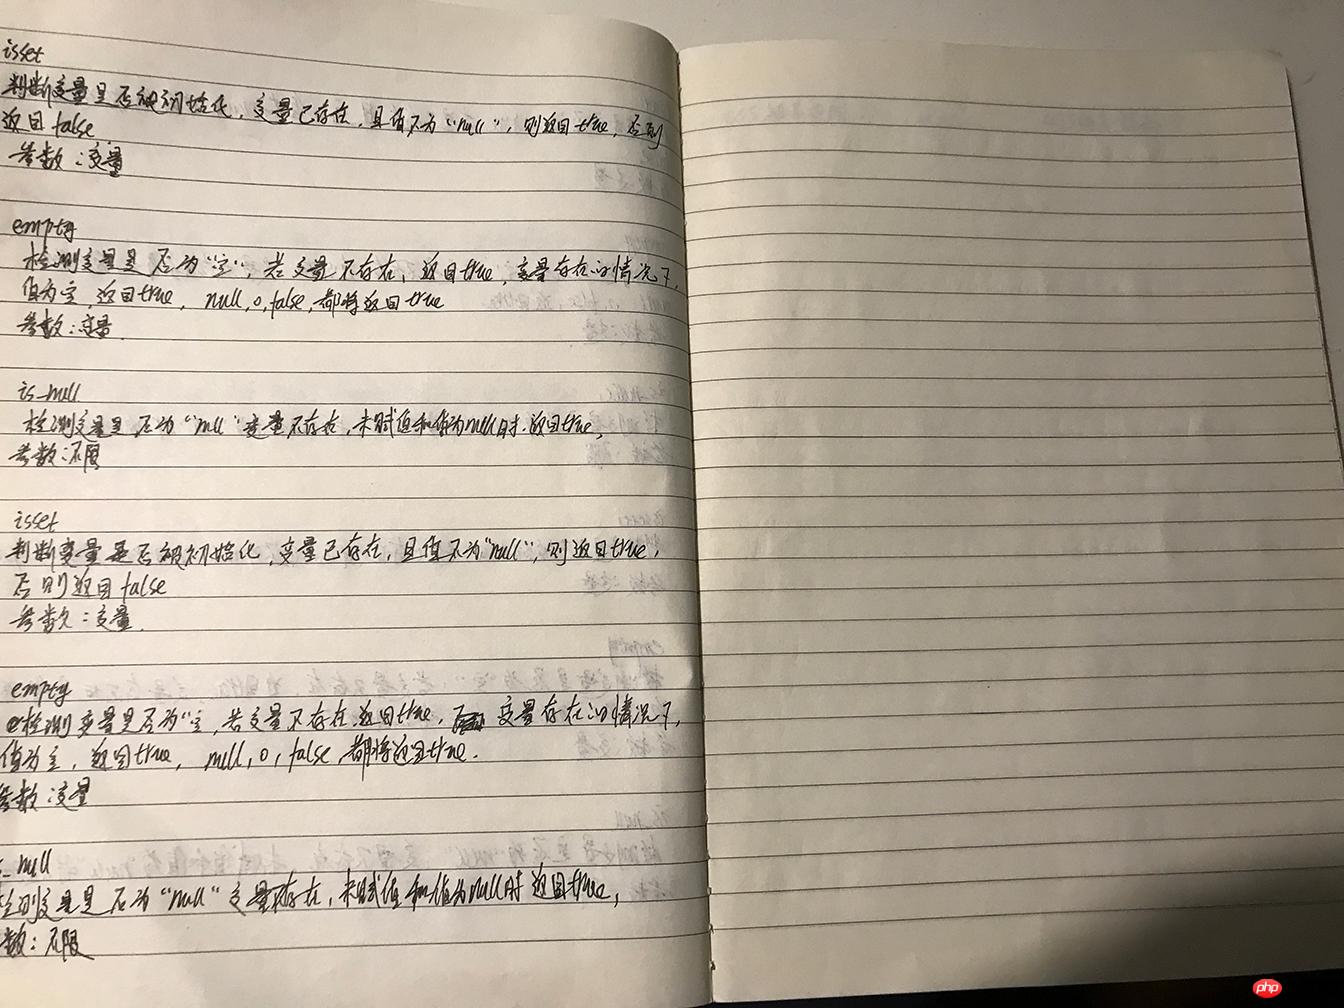 isset
判断变量是否被初始化，变量已存在，且值不为“null”，则返回true，否则
返回false
参数：变量
empty
检测变量是否为“空”，若变量不存在，返回true，变量存在的情况下，
值为空，返回true，null，0，false，都将返回true
参数：变量
is_null
检测变量是否为“null”变量不存在，未赋值和值为null时，返回true，
参数：不限
isset
判断变量是否被初始化，变量已存在，且值不为“null”，则返回true，
否则返回false
参数：变量
empty
检测变量是否为“空，若变量不存在，返回true，变量存在的情况下，
值为空，返回true，null，0，false，都将返回true．
参数：变量
_null
检测变量是否为“null“变量不存在，未赋值和值为null时返回true，
数：不限
php